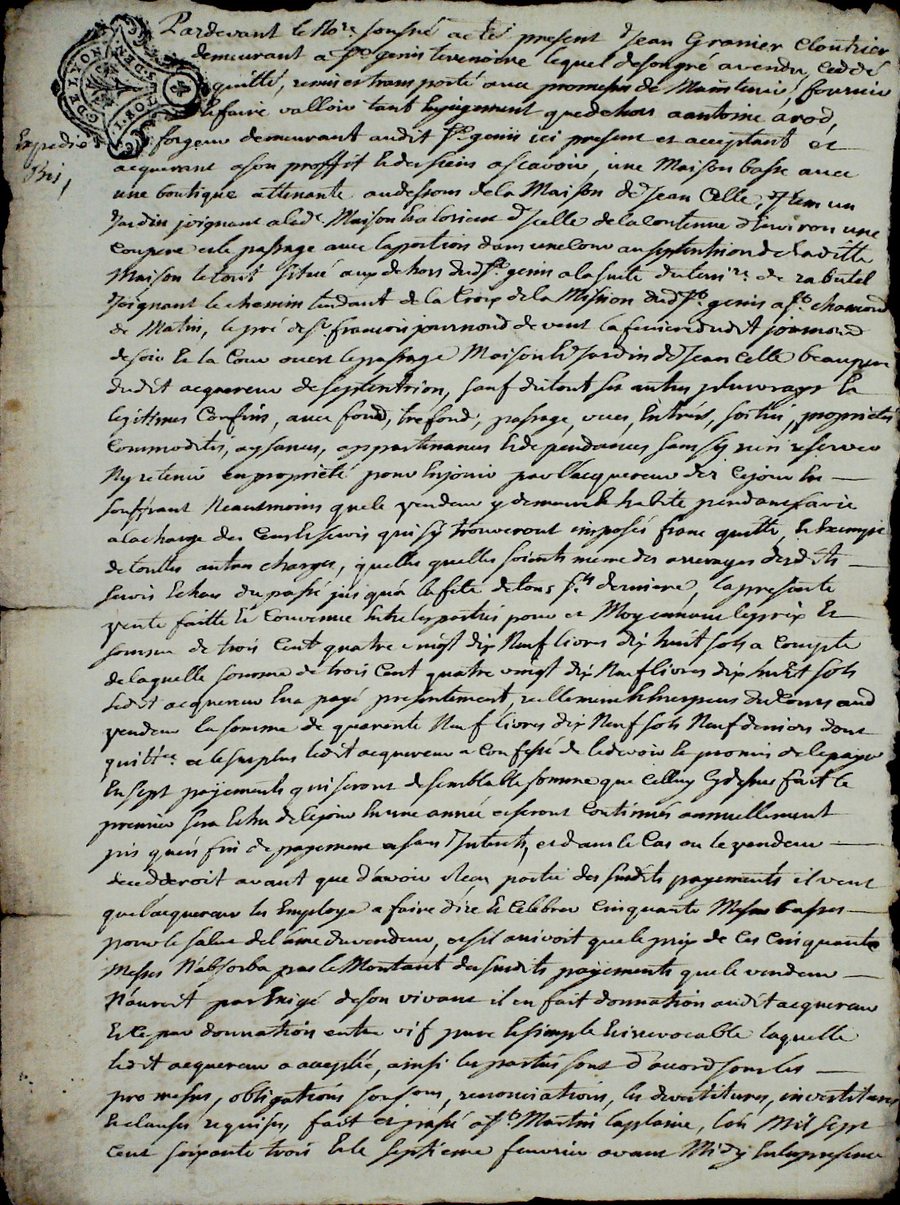 G. DE LYON
Pardevant le No.re sousné a été present Jean Granier Cloutier
demeurant a St genis terrenoire lequel de son gré a vendu, ceddé
quitté, remis et transporté avec promesse de Maintenir, fournir
et faire valloir tant en jugement que dehors a antoine arod,
forgeur demeurant audit St. genis ici present et acceptant et
Expedié
acquerant a son proffit et des siens ascavoir, une Maison basse avec
une boutique attenante audessous de la Maison de Jean Celle, Item un
Jardin joignant a lad.e Maison et a lorient d'Icelle de la contenue d'Environ une
coupere et le passage avec la portion dans une cour au septentrion de laditte
Maison le tout situé aux dehors dud. St. genis a la suite du terri.re de rabutel
Joignant le chemin tendant de la Croix de la Mission dud. St. genis a St. chamond
de Matin, le pré de Sr. francois journoud de vent la feniere dudit journoud
de soir et la Cour ou est le passage Maison et Jardin de Jean Celle beaupere
dudit acquereur de septentrion, sauf du tout ses autres plus vrays et
legitimes Confins, avec fond, tréfond, passage, vues, Entrées, sorties, proprietés
Commodités, aysances, appartenances et dependances sans s'y rien reserver
Ny retenir en propriété pour En jouir par l'acquereur dez Cejour En
souffrant Neantmoins que le vendeur y demeure et habite pendant sa vie
a la charge des Cens et servis qui s'y trouveront imposés franc quitte, et Exempte
de toutes autres charges, quelles quelles soients meme des arrerages desdits
servis Echus du passé jusqu'a la fete de tous Sts. derniere, la presente
vente faitte et Convenue Entre les parties pour et Moyennant le prix Et
somme de trois Cent quatre vingt dix Neuf livres dix huit sols a Compte
de laquelle somme de trois Cent quatre vingt dix Neuf livres dix huit sols
Ledit acquereur En a payé presentement, reellement et En especes du Cours aud
vendeur la somme de quarente Neuf livres dix Neuf sols Neuf deniers dont
quitt.ce et le surplus ledit acquereur a Confessé de le devoir Et promis de le payer
En sept payements qui seront de semblable somme que Celluy Cydessus fait le
premier sera Echu de Cejour En une année et seront Continués annuellement
jusqu'en fin de payement et sans Interets, et dans le Cas ou le vendeur
decedderoit avant que d'avoir reçu partie des susdits payements il veut
que l'acquereur les Employe a faire dire Et Celebrer Cinquante Messes basses
pour le salut de l'ame du vendeur, et s'il arrivoit que le prix de Ces Cinquante
Messes N'absorba pas le Montant des susdits payements que le vendeur
N'auroit pas Exigé de son vivant il en fait donnation audit acquereur
Et Ce par donnation entre vif pure et simple Et irrevocable laquelle
ledit acquereur a acceptée, ainsi les parties sont d'accord sous les
promesses, obligations, renonciations, les devestitures, investitures
Et clauses requises, fait et passé a St. Martin la plaine, L'an Mil sept
cent soixante trois Et le septieme fevrier avant Midy En la presence